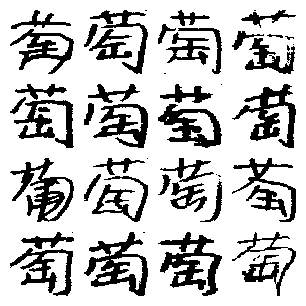 萄萄萄萄
萄萄萄萄
葡萄萄萄
萄萄萄萄